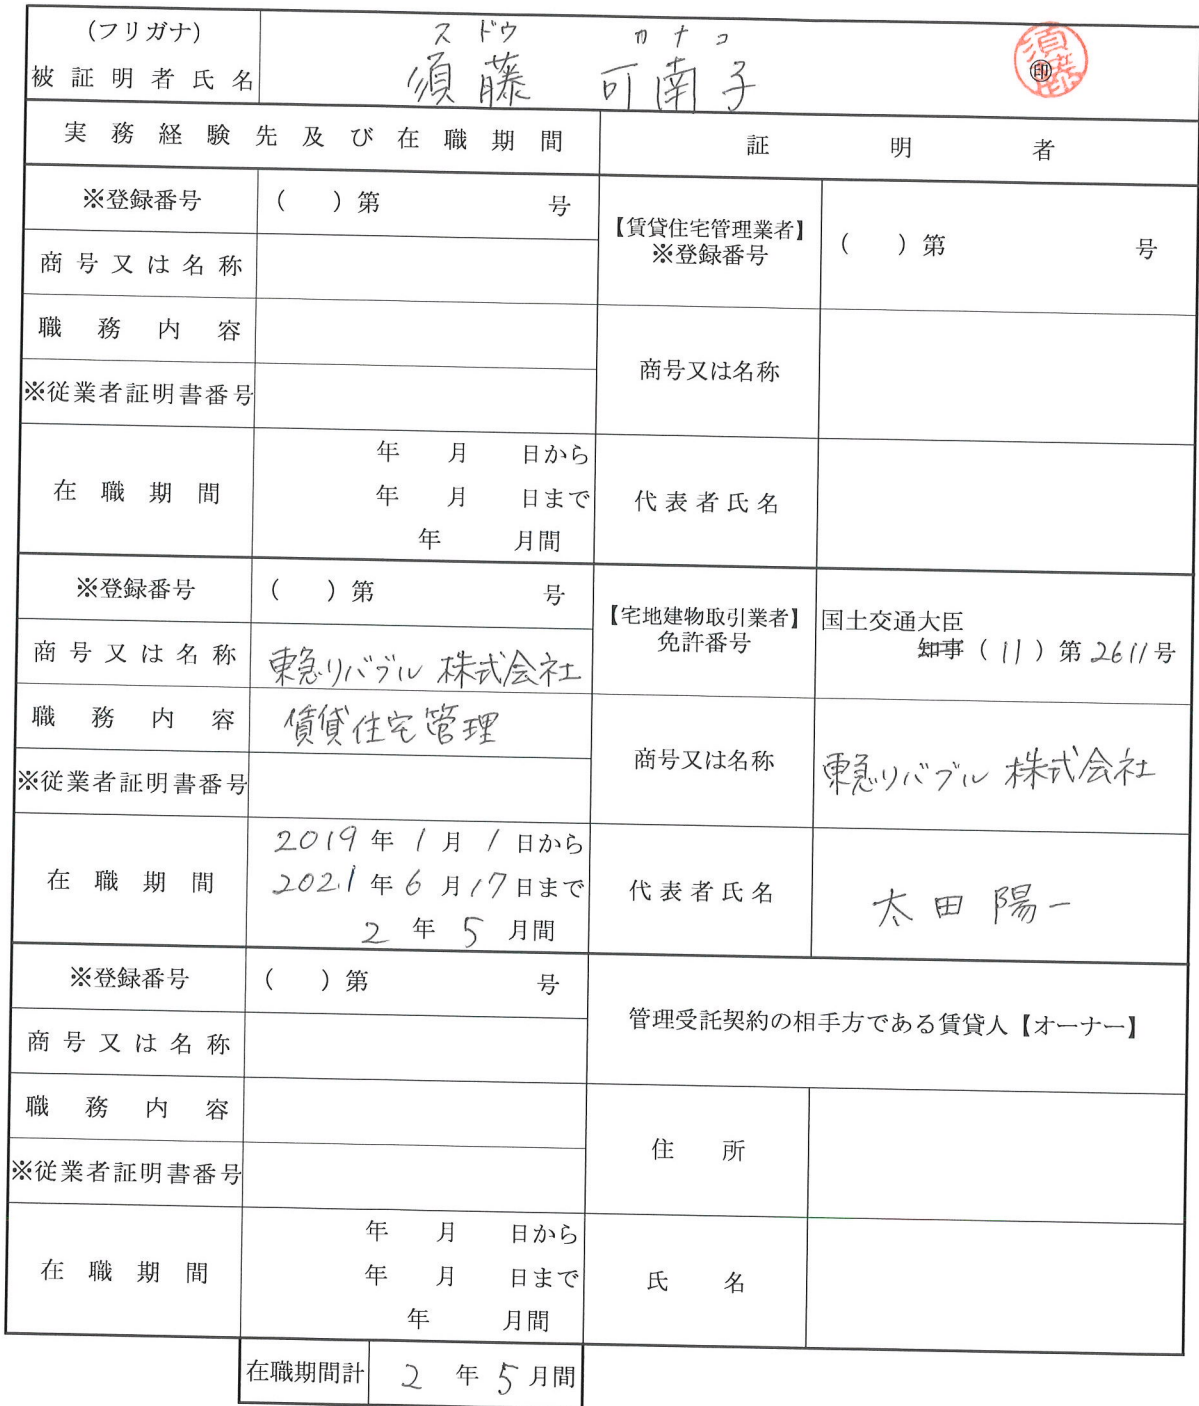 (フリガナ) スドウ カナコ
被証明者氏名 須藤 可南子 ㊞ 須藤
実務経験先及び在職期間 証明者
※登録番号 ( ) 第 号
商号又は名称
職務内容
※従業者証明書番号
在職期間 年 月 日から
年 月 日まで
年 月間
【賃貸住宅管理業者】
※登録番号 ( ) 第 号
商号又は名称
代表者氏名
※登録番号 ( ) 第 号
商号又は名称 東急リバブル 株式会社
職務内容 賃貸住宅管理
※従業者証明書番号
在職期間 2019 年 1 月 1 日から
2021 年 6 月 17 日まで
2 年 5 月間
【宅地建物取引業者】
免許番号 国土交通大臣
知事 ( 11 ) 第 2611 号
商号又は名称 東急リバブル 株式会社
代表者氏名 太田 陽一
※登録番号 ( ) 第 号
商号又は名称
職務内容
※従業者証明書番号
在職期間 年 月 日から
年 月 日まで
年 月間
管理受託契約の相手方である賃貸人【オーナー】
住所
氏名
在職期間計 2 年 5 月間